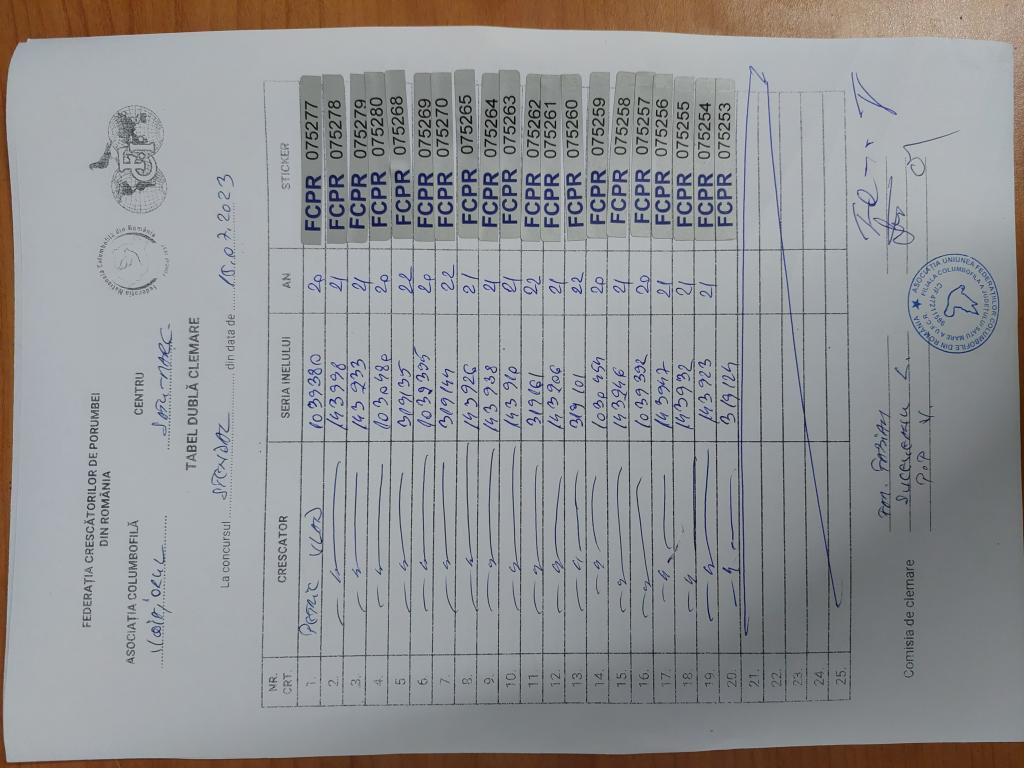 FEDERAȚIA CRESCĂTORILOR DE PORUMBEI
DIN ROMÂNIA
Federația Națională Columbofilă din România
ASOCIAȚIA COLUMBOFILĂ
CENTRU
SATU-MARE
TABEL DUBLĂ CLEMARE
La concursul STENDAL din data de 15.07.2023
NR. CRT. CRESCATOR SERIA INELULUI AN STICKER
1. VLAD 1039380 20 FCPR 075277
2. 143998 21 FCPR 075278
3. 143233 21 FCPR 075279
4. 1030480 20 FCPR 075280
5 319135 22 FCPR 075268
6. 1039395 20 FCPR 075269
7. 319144 22 FCPR 075270
8. 143926 21 FCPR 075265
9. 143938 21 FCPR 075264
10. 143910 21 FCPR 075263
11. 319161 22 FCPR 075262
12. 143906 21 FCPR 075261
13. 319101 22 FCPR 075260
14. 20 FCPR 075259
15. 143946 21 FCPR 075258
16. 1039392 20 FCPR 075257
17. 143947 21 FCPR 075256
18. 143932 21 FCPR 075255
19. 143923 21 FCPR 075254
20. 319124 FCPR 075253
21.
22.
23.
24.
25.
Comisia de clemare
FABIAN
POP V.
ASOCIAȚIA UNIUNEA FEDERAȚIILOR COLUMBOFILE DIN ROMÂNIA
FILIALA COLUMBOFILA A JUDEȚULUI SATU MARE A U.F.C.R.